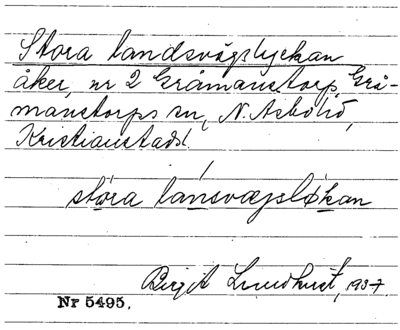 Stora landsvägslyckan
åker, nr 2 Gråmanstorp, Grå-
manstorps sn, N. Åsbo hd,
Kristianstads l.
stóra lánsvægsløkan
Birgit Lundkvist, 1937.
Nr 5495.